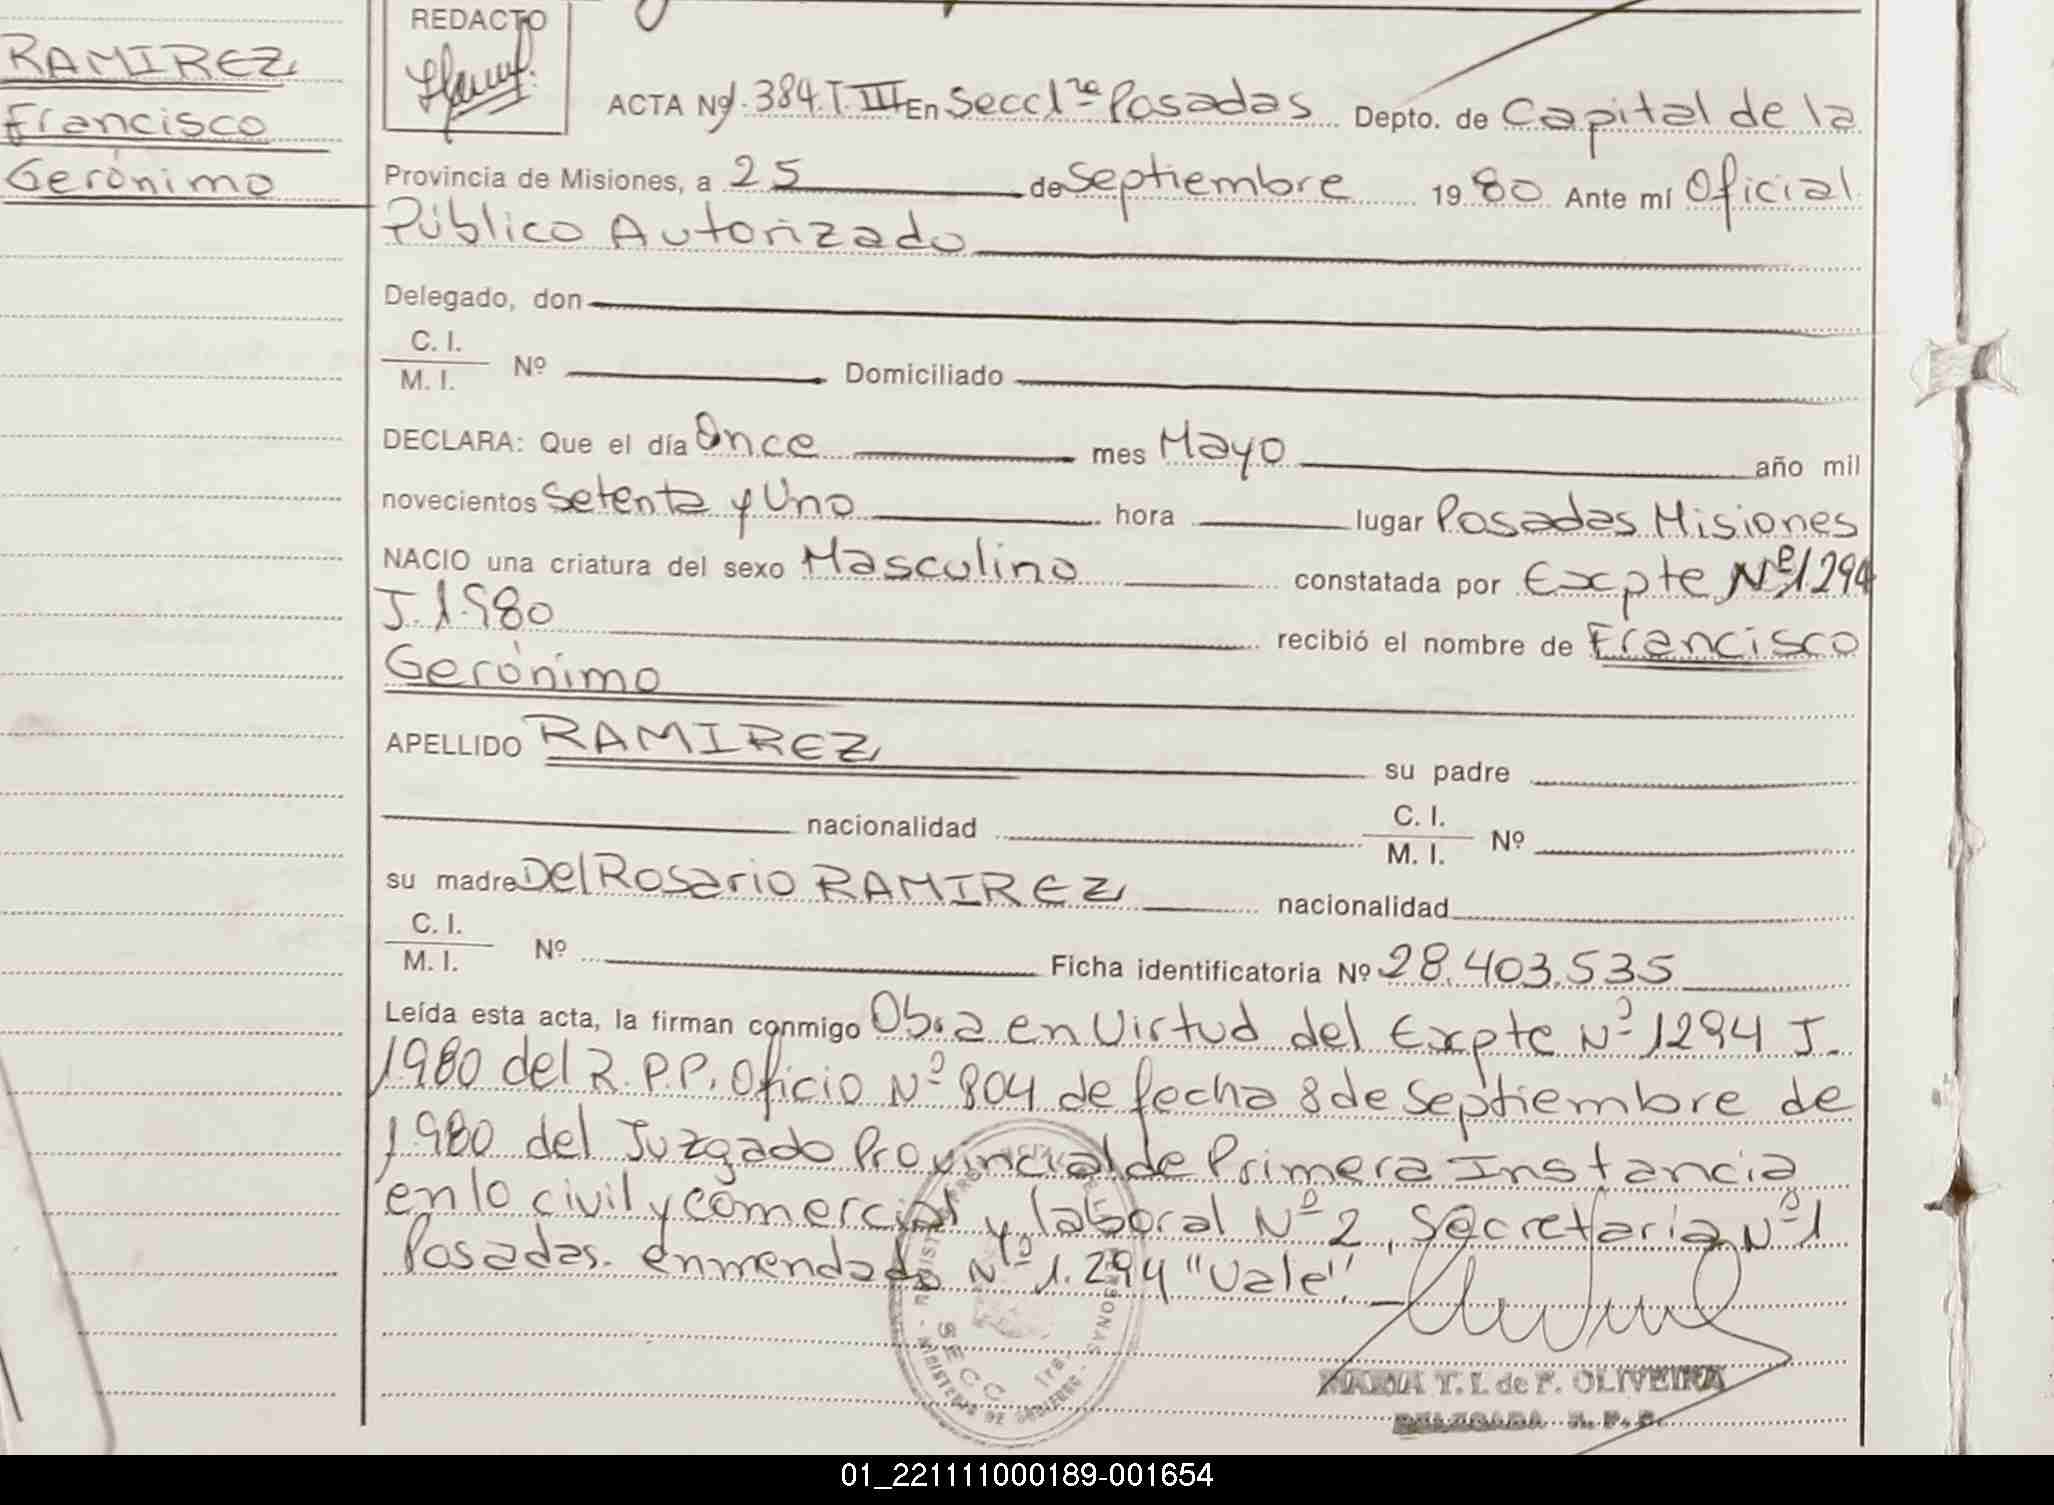 REDACTO
RAMIREZ
Francisco
Gerónimo
ACTA Nº 384.T.III En Secc 1ra Posadas Depto. de Capital de la
Provincia de Misiones, a 25 de septiembre 1980 Ante mí Oficial
Público Autorizado
Delegado, don
C. I.
M. I. Nº Domiciliado
DECLARA: Que el día Once mes Mayo año mil
novecientos Setenta y Uno hora lugar Posadas Misiones
NACIO una criatura del sexo Masculino constatada por Expte Nº 1.294
J. 1980 recibió el nombre de Francisco
Gerónimo
APELLIDO RAMIREZ su padre
nacionalidad C. I. M. I. Nº
su madre Del Rosario RAMIREZ nacionalidad
C. I.
M. I. Nº Ficha identificatoria Nº 28.403.535
Leída esta acta, la firman conmigo Obra en Virtud del Expte Nº 1294 J.
1980 del R.P.P. Oficio Nº 804 de fecha 8 de Septiembre de
1980 del Juzgado Provincial de Primera Instancia
en lo civil y comercial y laboral Nº 2, Secretaria Nº 1
Posadas. enmendado Nº 1.294 "Vale".
SECC 1ra.
MARIA T. I. de F. OLIVEIRA
DELEGADA R. P. P.
01_221111000189-001654